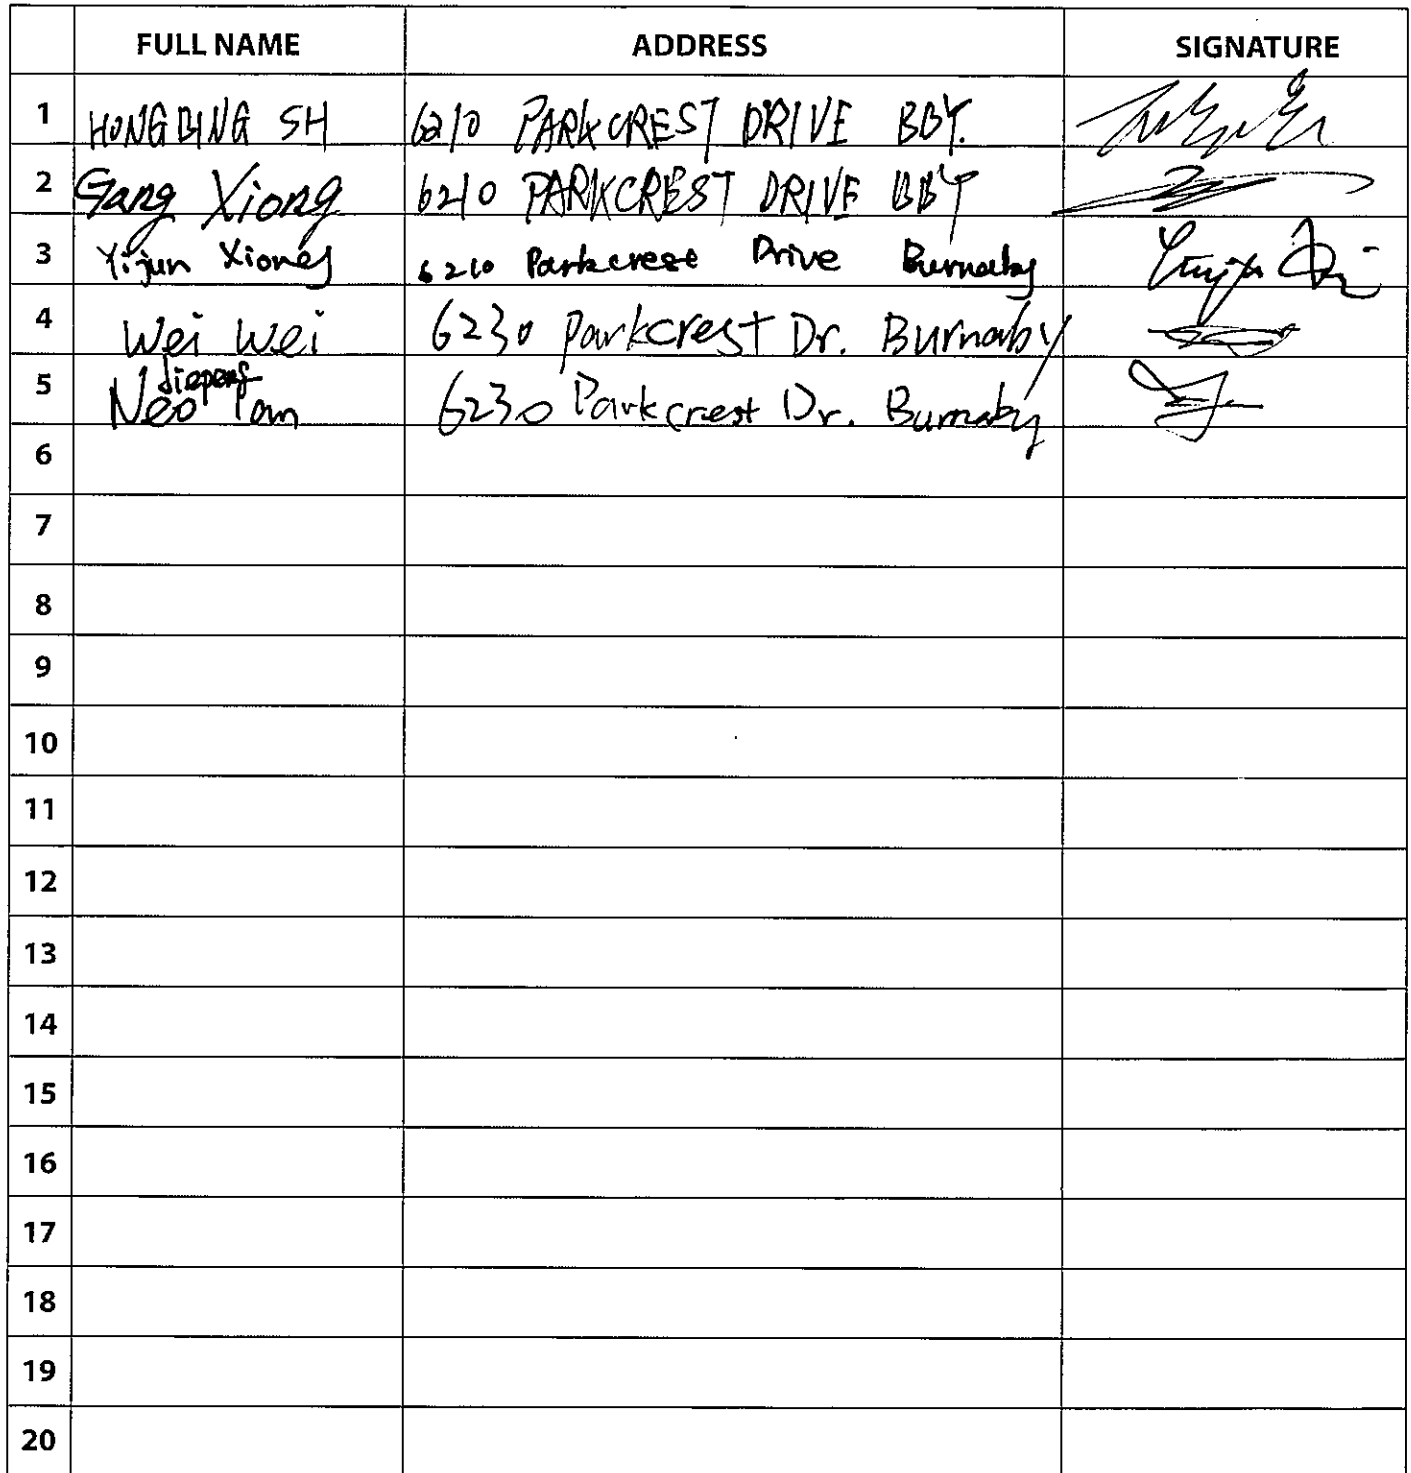 FULL NAME ADDRESS SIGNATURE
1 HONGBING SH 6210 PARKCREST DRIVE BBY.
2 Gang Xiong 6210 PARKCREST DRIVE BBY
3 Yijun Xiong 6210 Parkcrest Drive Burnaby
4 Wei Wei 6230 Parkcrest Dr. Burnaby
5 Neo Pan 6230 Parkcrest Dr. Burnaby
6
7
8
9
10
11
12
13
14
15
16
17
18
19
20